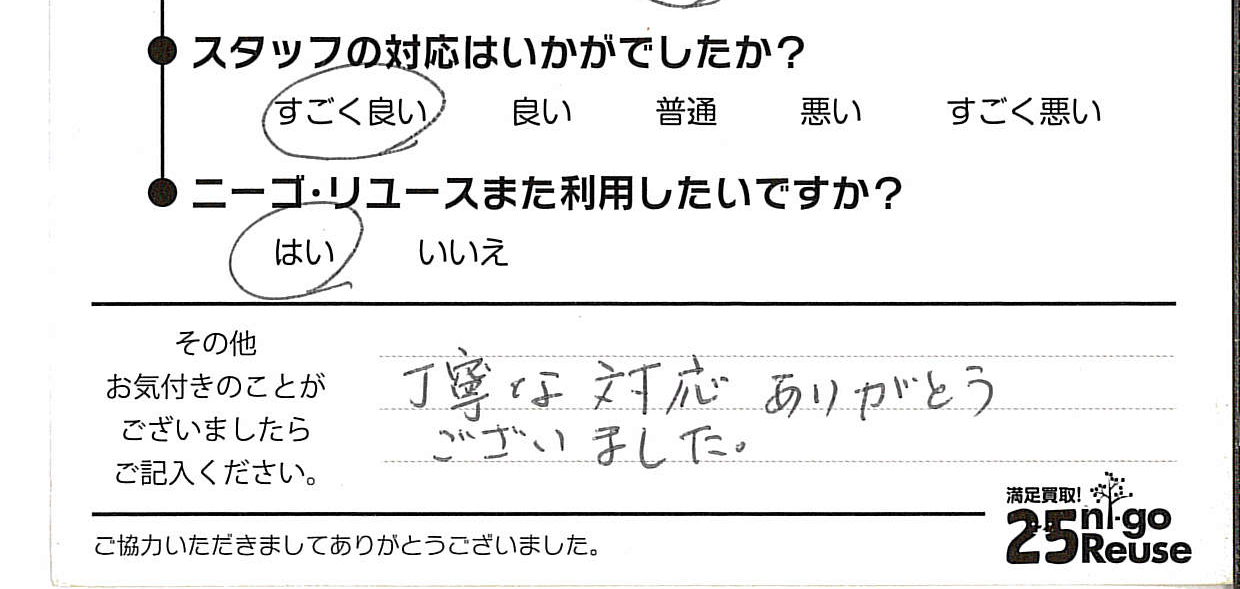 スタッフの対応はいかがでしたか?
すごく良い 良い 普通 悪い すごく悪い
ニーゴ・リユースまた利用したいですか?
はい いいえ
その他
お気付きのことが
ございましたら
ご記入ください。
丁寧な対応ありがとう
ございました。
満足買取!
25 ni-go
Reuse
ご協力いただきましてありがとうございました。